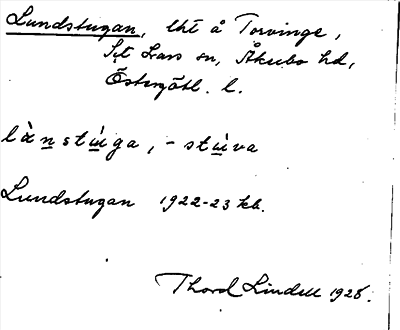 Lundstugan, lht å Torvinge,
S:t Lars sn, Åkerbo hd,
Östergötl. l.
lànstúga, -stùva
Lundstugan 1922-23 kb.
Thord Lindell 1928.